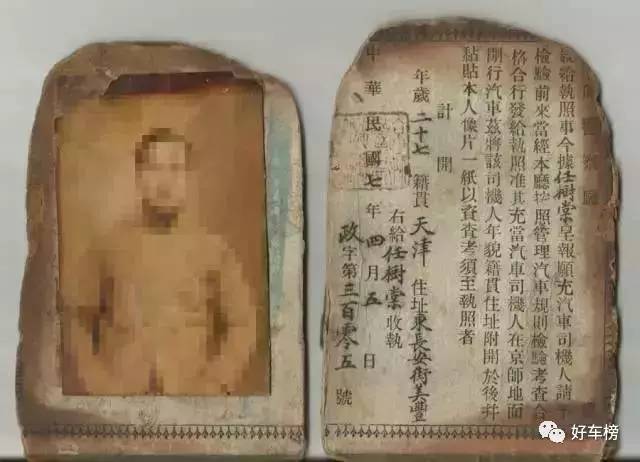 警察廳
給執照事今據任樹棠呈報願充汽車司機人請予
檢驗前來當經本廳按照管理汽車規則檢驗考查合
格合行發給執照准其充當汽車司機人在京師地面
開行汽車茲將該司機人年貌籍貫住址附開於後并
黏貼本人像片一紙以資查考須至執照者
計開
年歲二十七 籍貫天津 住址東長安街美豐
右給任樹棠收執
中華民國七年四月五日
政字第三百零五號
好车榜